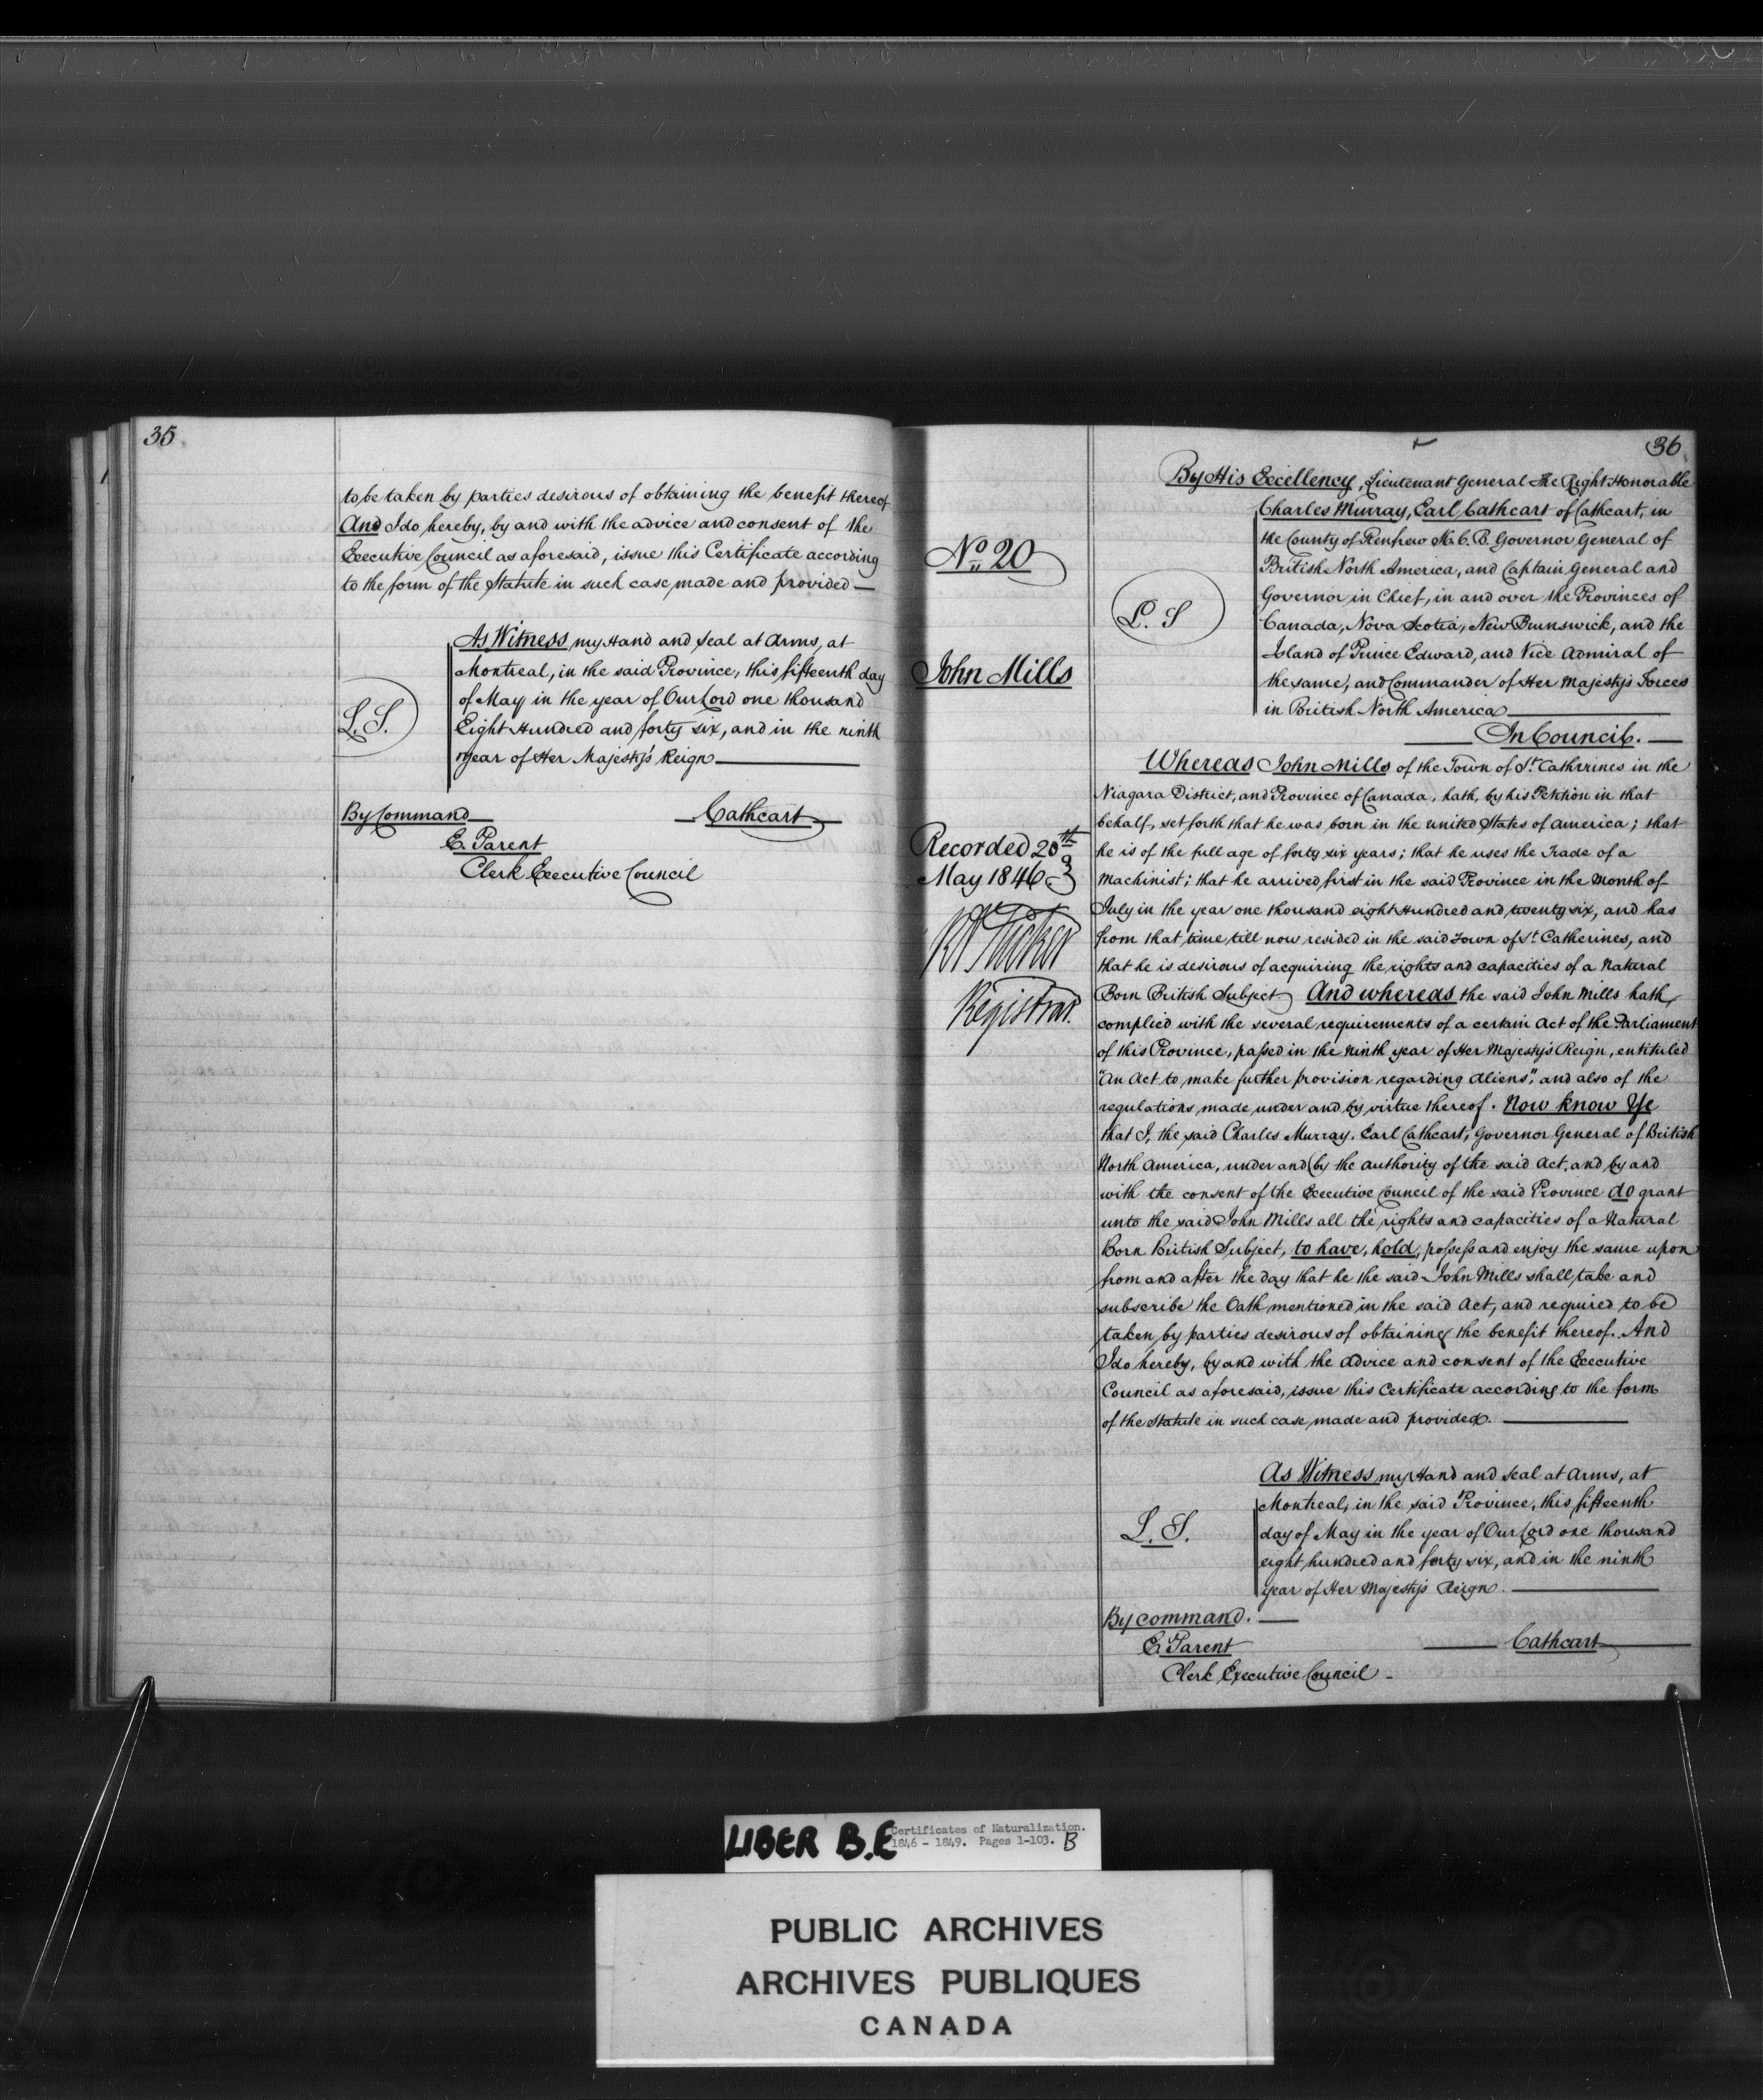 35
to be taken by parties desirous of obtaining the benefit thereof
And I do hereby, by and with the advice and consent of the
Executive Council as aforesaid, issue this Certificate according
to the form of the Statute in such case made and provided —
As Witness my Hand and Seal at Arms, at
Montreal, in the said Province, this fifteenth day
of May in the year of Our Lord one thousand
Eight Hundred and forty six, and in the ninth
year of Her Majesty's Reign —
L.S.
By Command —
— Cathcart —
E. Parent
Clerk Executive Council
36
No 20
John Mills
Recorded 20th
May 1846
Registrar.
By His Excellency, Lieutenant General The Right Honorable
Charles Murray, Earl Cathcart of Cathcart, in
the County of Renfrew K.C.B. Governor General of
British North America, and Captain General and
Governor in Chief, in and over the Provinces of
Canada, Nova Scotia, New Brunswick, and the
Island of Prince Edward, and Vice Admiral of
the same, and Commander of Her Majesty's Forces
in British North America —
L. S
— In Council. —
Whereas John Mills of the Town of St. Catherines in the
Niagara District, and Province of Canada, hath, by his Petition in that
behalf, set forth that he was born in the united States of America; that
he is of the full age of forty six years; that he uses the Trade of a
Machinist; that he arrived first in the said Province in the Month of
July in the year one thousand eight Hundred and twenty six, and has
from that time till now resided in the said Town of St. Catherines, and
that he is desirous of acquiring the rights and capacities of a Natural
Born British Subject And whereas the said John Mills hath
complied with the several requirements of a certain Act of the Parliament
of this Province, passed in the Ninth year of Her Majesty's Reign, entituled
"An Act to make further provision regarding Aliens", and also of the
regulations made under and by virtue thereof. Now know Ye
that I, the said Charles Murray, Earl Cathcart, Governor General of British
North America, under and by the authority of the said Act, and by and
with the consent of the Executive Council of the said Province do grant
unto the said John Mills all the rights and capacities of a Natural
Born British Subject, to have, hold, possess and enjoy the same upon
from and after the day that he the said John Mills shall take and
subscribe the Oath mentioned in the said Act, and required to be
taken by parties desirous of obtaining the benefit thereof. And
I do hereby, by and with the advice and consent of the Executive
Council as aforesaid, issue this Certificate according to the form
of the Statute in such case made and provided. —
As Witness my Hand and Seal at Arms, at
Montreal, in the said Province, this fifteenth
day of May in the year of Our Lord one thousand
eight hundred and forty six, and in the ninth
year of Her Majesty's Reign. —
L. S.
By Command. —
E. Parent
— Cathcart —
Clerk Executive Council -
LIBER B.E
Certificates of Naturalization.
1846 - 1849. Pages 1-103. B
PUBLIC ARCHIVES
ARCHIVES PUBLIQUES
CANADA